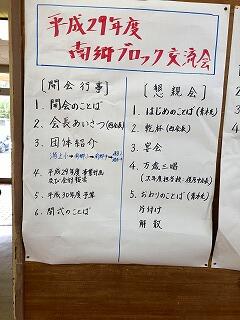 平成29年度
南郷ブロック交流会
[開会行事]
1. 開会のことば
2. 会長あいさつ
3. 団体紹介
4. 平成29年度 事業計画
及び会計報告
5. 平成30年度 予算
6. 閉式のことば
[懇親会]
1. はじめのことば
2. 乾杯
3. 宴会
4. 万歳三唱
5. おわりのことば
片付け
解散